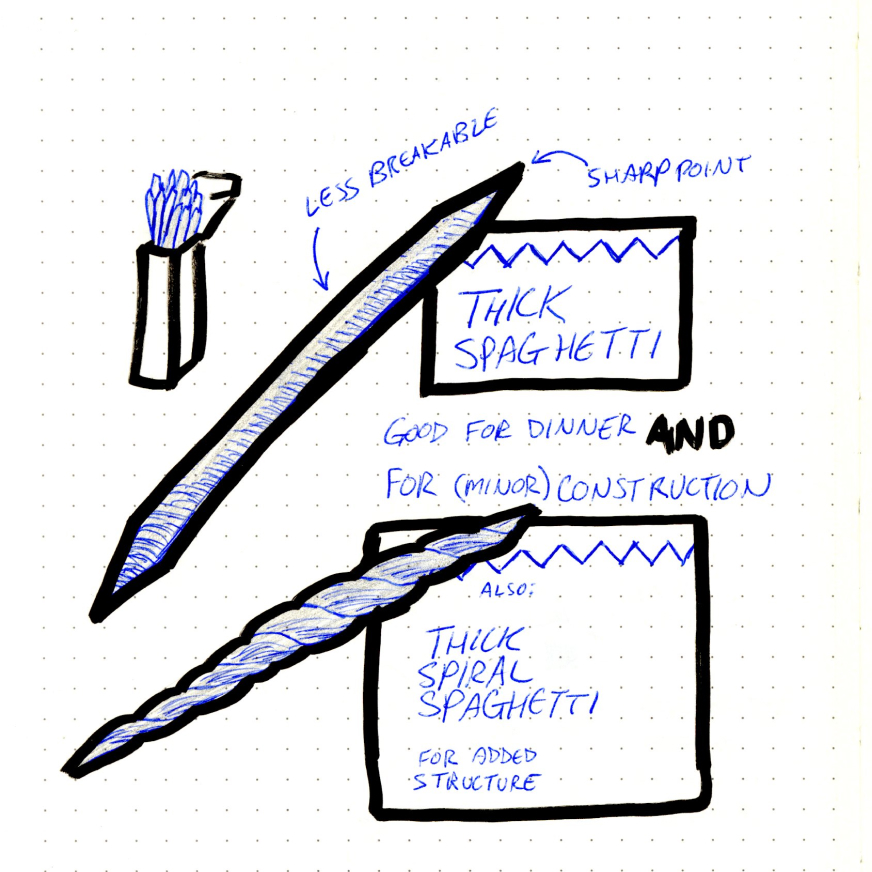 LESS BREAKABLE
SHARP POINT
THICK
SPAGHETTI
GOOD FOR DINNER AND
FOR (MINOR) CONSTRUCTION
ALSO:
THICK
SPIRAL
SPAGHETTI
FOR ADDED
STRUCTURE